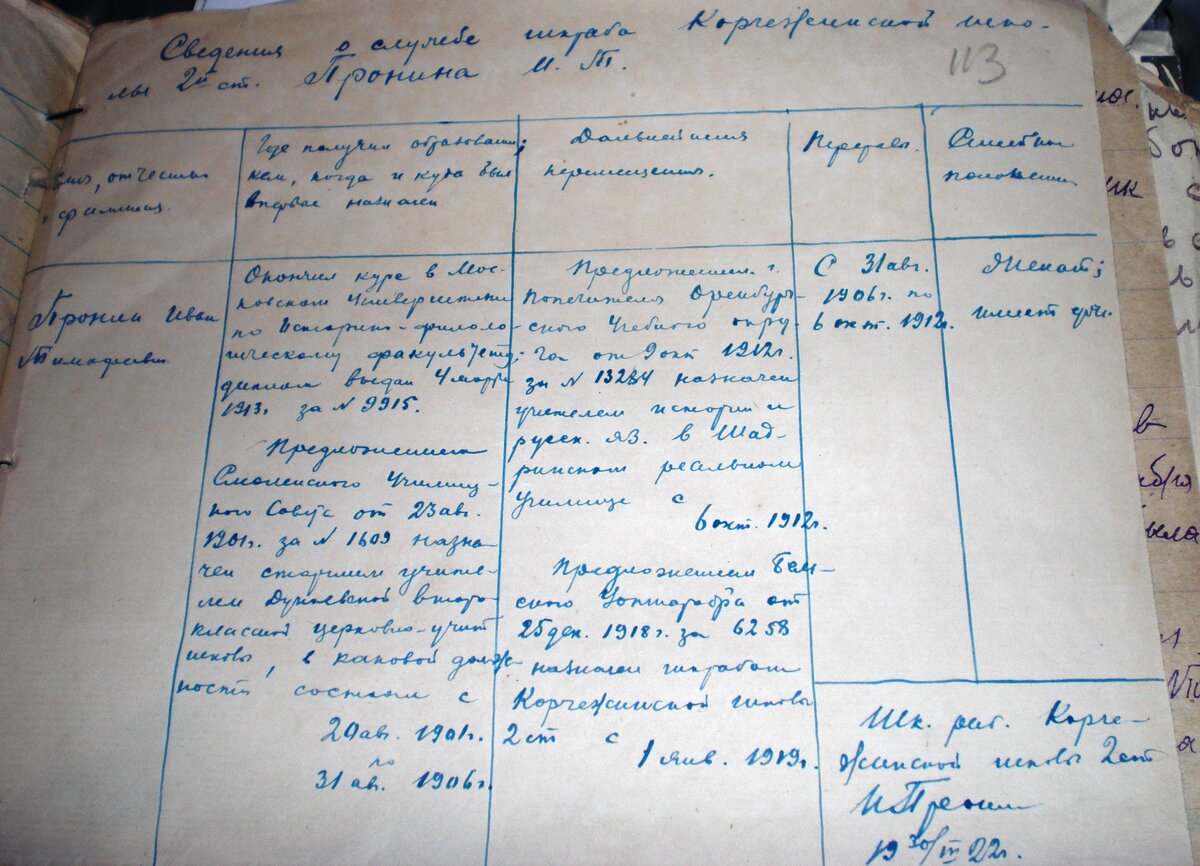 Сведения о службе шкраба Корчежинской шко-
лы 2й ст. Пронина И. Т.
113
имя, отчество
и фамилия.
Где получил образование;
кем, когда и куда был
впервые назначен
Дальнейшия
перемещения.
Перерывы.
Семейное
положение
Пронин Иван
Тимофеевич
Окончил курс в Мос-
ковском Университете
по Историко-филоло-
гическому факультету;
диплом выдан 4 марта
1913г. за № 9915.
Предложением
Смоленского Училищ-
ного Совета от 23 авг.
1901г. за № 1609 назна-
чен старшим учите-
лем Дунаевской второ-
классной церковно-учит
школы, в каковой долж-
ности состоял с
20 ав. 1901г.
по
31 ав. 1906г.
Предложением г.
Попечителя Оренбург-
ского Учебного окру-
га от 9 окт 1912г.
за № 13284 назначен
учителем истории и
русск. яз. в Шад-
ринском реальном
училище с
6 окт. 1912г.
Предложением
ского от
25 дек. 1918г. за 6258
назначен шкрабом
Корчежинской школы
2 ст с
1 янв. 1919г.
С 31 авг.
1906г. по
6 окт. 1912г.
Женат;
имеет дочь.
Шк. раб. Корче-
жинской школы 2 ст
И Пронин
19 30/IV 22г.